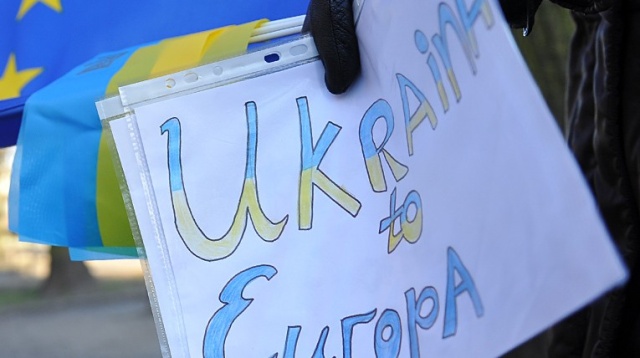 UKRAinA
to
EuropA